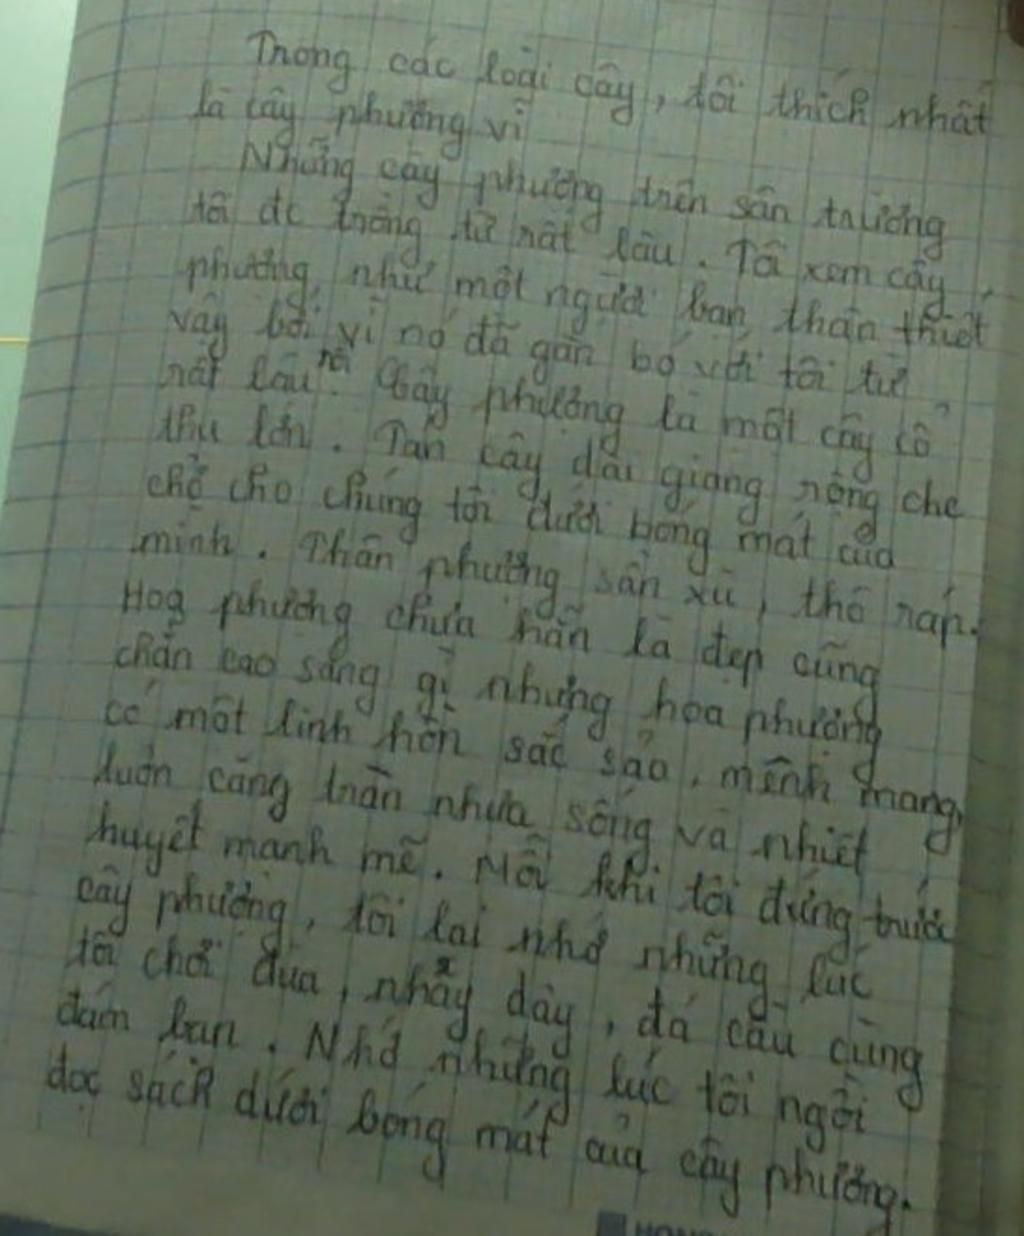 Trong các loài cây, tôi thích nhất
là cây phường vĩ
Những cây phường trên sân trường
tôi đc trồng từ rất lâu. Tôi xem cây
phường như một người bạn thân thiết
vậy bởi vì nó đã gắn bó với tôi từ
rất lâu rồi. Cây phường là một cây cổ
thụ lớn. Tán cây dài giang rộng che
chở cho chúng tôi dưới bóng mát của
mình. Thân phường sần xù, thô ráp.
Hoa phường chưa hẳn là đẹp cũng
chẳn cao sang gì nhưng hoa phường
có một linh hồn sắc sảo, mênh mang,
luôn căng tràn nhựa sống và nhiệt
huyết mạnh mẽ. Mỗi khi tôi đứng trước
cây phường, tôi lại nhớ những lúc
tôi chơi đùa, nhảy dây, đá cầu cùng
đám bạn. Nhớ những lúc tôi ngồi
đọc sách dưới bóng mát của cây phường.